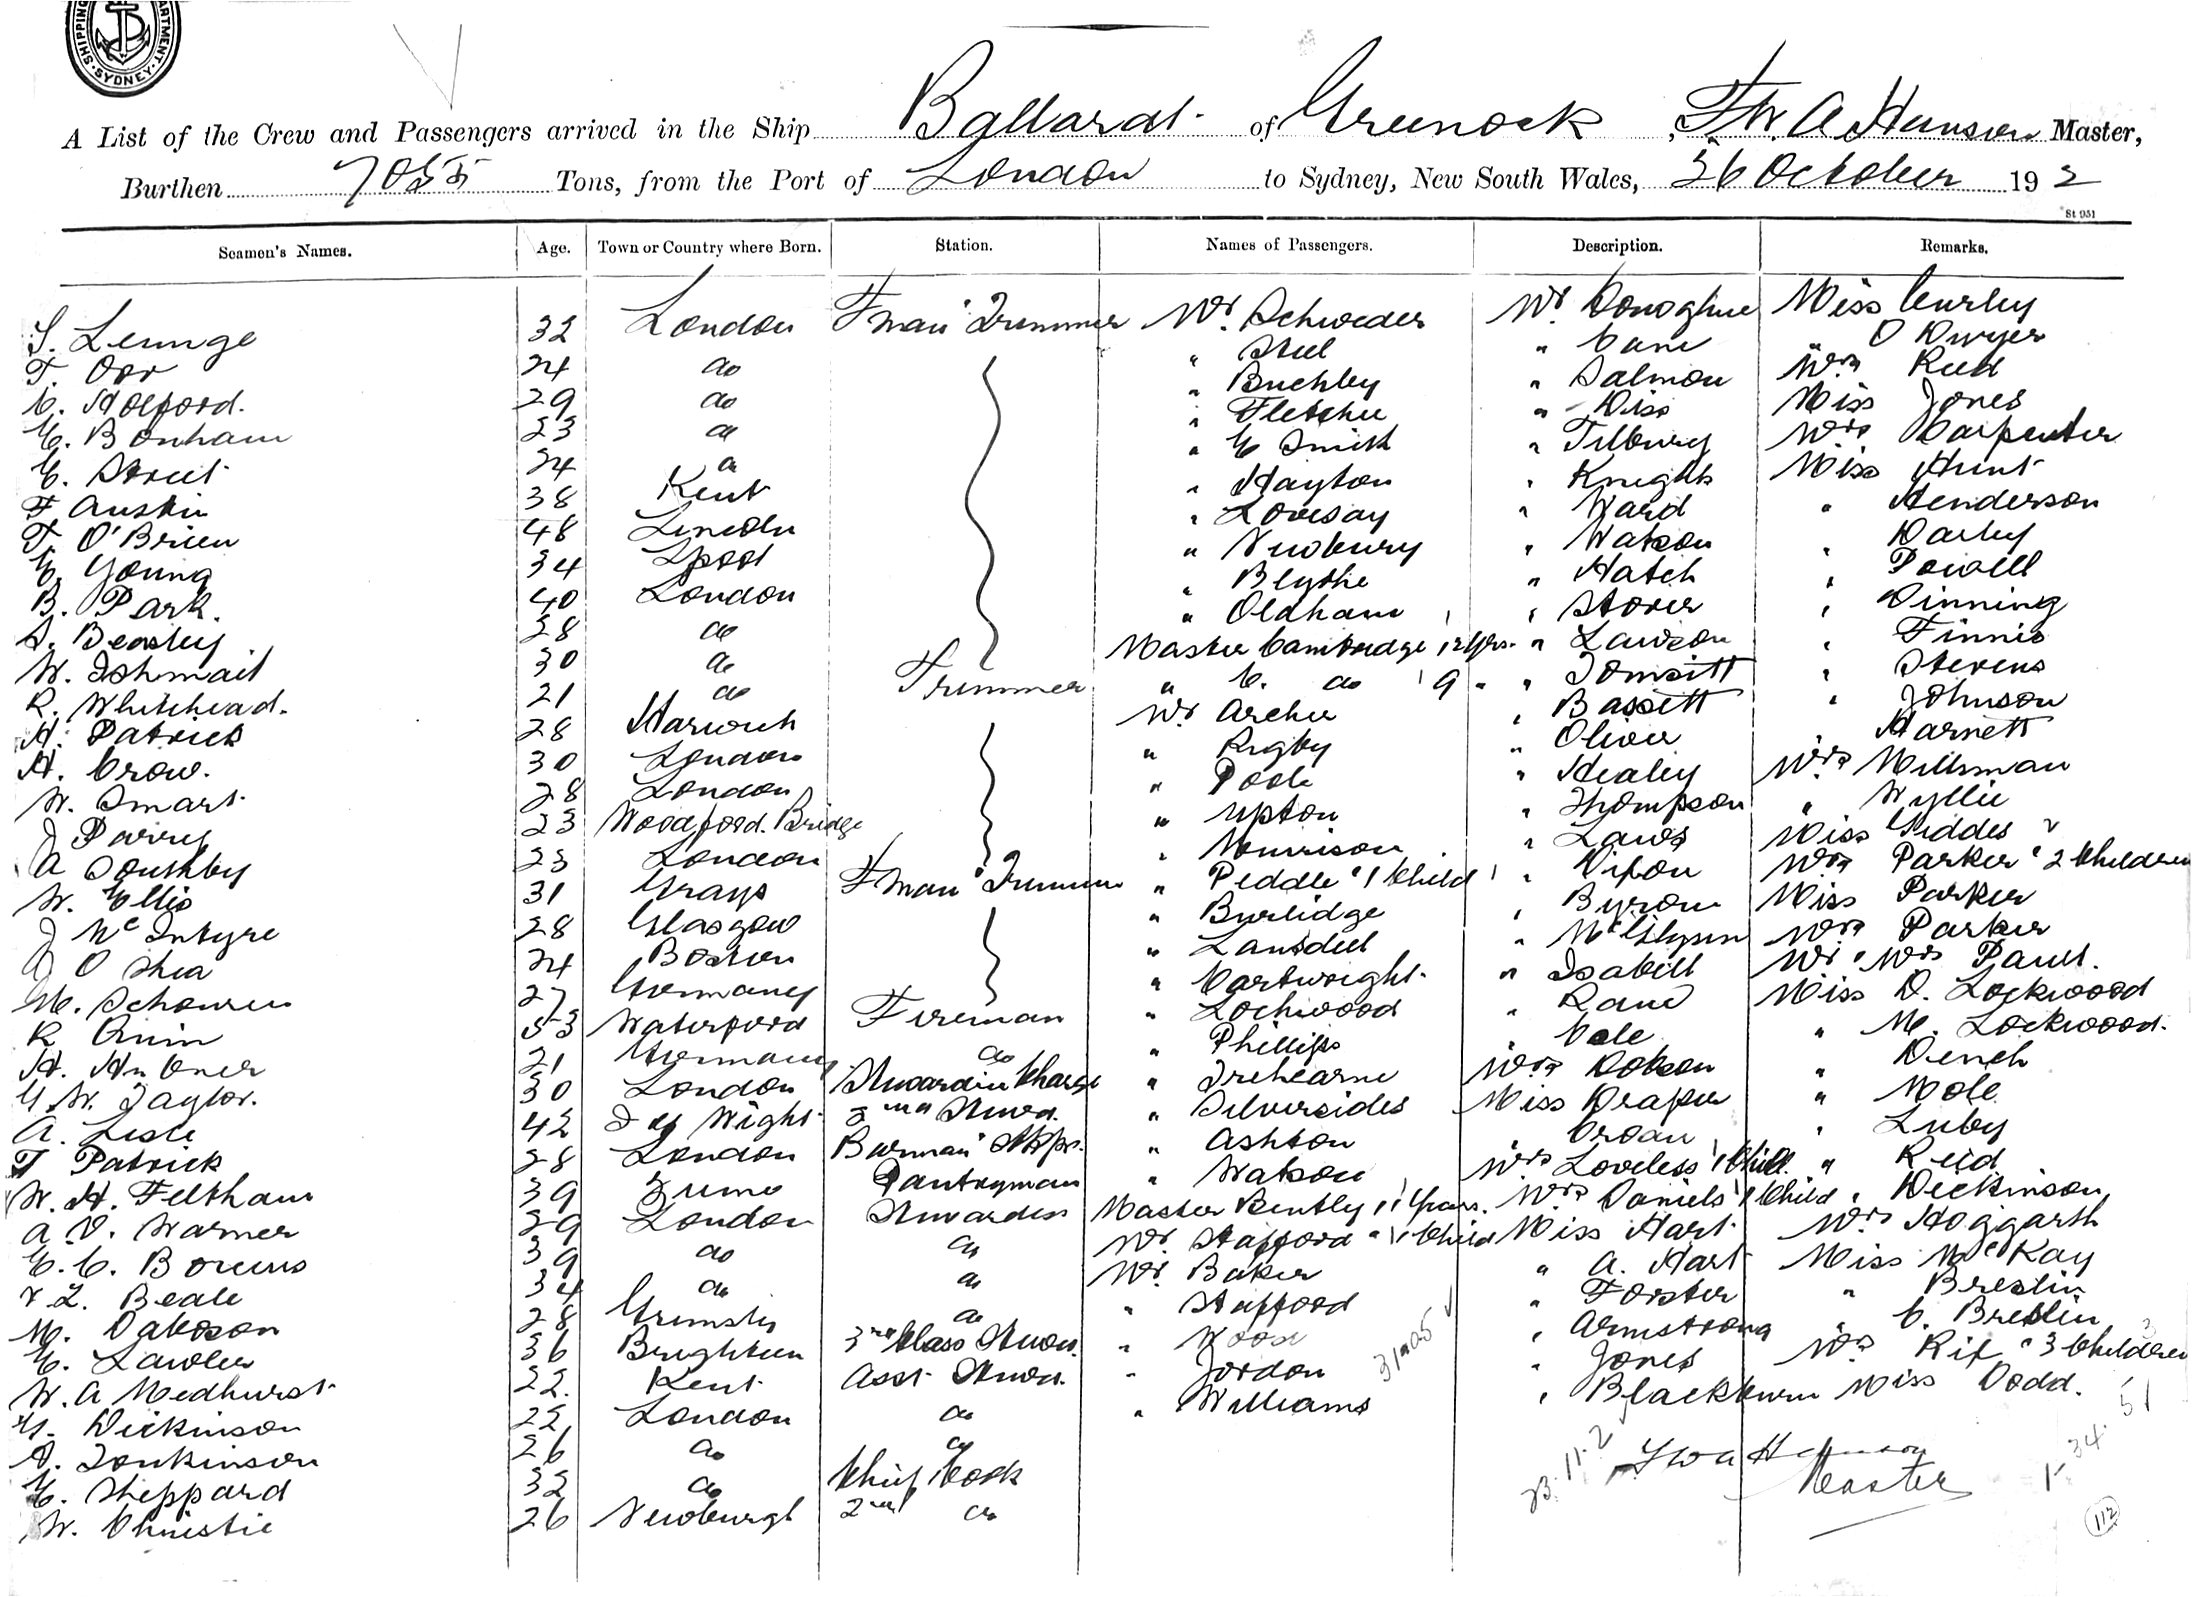 SHIPPING DEPARTMENT SYDNEY
A List of the Crew and Passengers arrived in the Ship Ballarat of Greenock, F W. A Hanson Master,
Burthen Tons, from the Port of London to Sydney, New South Wales, 26 October 19 2
St 951
Seamen's Names. Age. Town or Country where Born. Station. Names of Passengers. Description. Remarks.
32 London F'man & Trimmer Mr. Schweder Mr. Donoghue Miss Curley
T. Orr 24 do " Steel " Cane O Dwyer
C. Holford. 29 do " Buchley " Salmon Mrs Reed
E. Bonham 23 do " Fletcher " Diss Miss Jones
E. Street 24 do " E Smith " Tilbury Mrs Carpenter
F Austin 38 Kent " Hayton " Knights Miss Hunt
T. O'Brien 48 Lincoln " Lovesay " Ward " Henderson
E. Young 34 Lpool " Newbury " Watson " Darley
B. Park. 40 London " Blythe " Hatch " Powell
S. Beasley 28 do " Oldham " Storer " Dinning
W. Ishmail 30 do Master Cambridge 12 yrs. " Lawson " Finnis
R. Whitehead. 21 do Trimmer " C. do 9 " " Tomsitt " Stevens
H. Patrick 28 Harwich Mr Archer " Bassett " Johnson
H. Crow. 30 London " Rigby " Oliver " Harnett
W. Smart 28 London " Poole " Healey Mrs Millsman
J Parry 23 Woodford Bridge " Upton " Thompson " Wyllie
A Southby 23 London " Morrison " Laws Miss Giddes
W. Ellis 31 Grays F'man & Trimmer " Peddle & 1 Child " Dixon Mrs Parker & 2 Children
J McIntyre 28 Glasgow " Burlidge " Byrom Miss Parker
J O Shea 24 Boston " Lansdell " McGlynn Mrs Parker
M. Schouren 27 Germany " Cartwright " Isabell Mr & Mrs Paul.
R Quin 53 Waterford Fireman " Lockwood " Rand Miss D. Lockwood
H. Hubner 21 Germany do " Phillips " Cole " M. Lockwood.
G. W. Taylor. 30 London Steward in Charge " Trehearne Mrs Dobson " Dench
A. Lisle 42 I of Wight 2nd Stwd. " Silversides Miss Draper " Mole
T Patrick 28 London Barman & Stpr. " Ashton " Croan " Luby
W. H. Feltham 39 Pantryman " Watson Mrs Loveless 1 Child. " Reid
A. V. Warner 29 London Stewardess Master Bently 11 Years. Mrs Daniels 1 Child " Dickinson
E. C. 39 do do Mr. Stafford & 1 Child Miss Hart Mrs Hoggarth
Z. Beale 34 do do Mr. Baker " A. Hart Miss McKay
M. Dawson 28 Grimsby do " Stafford " Forster " Breslin
E. Lawler 36 Brighton 3rd Class Stwd. " Wood " Armstrong " C. Breslin
W. A Medhurst 22. Kent Asst. Stwd. " Jordon " Jones Mrs Rix & 3 Children
G. Dickinson 22 London do " Williams " Blackburn Miss Dodd.
A. Tonkinson 26 do do
E. Sheppard 32 do Chief Cook
W. Christie 26 Newburgh 2nd do
51
Master
34
112